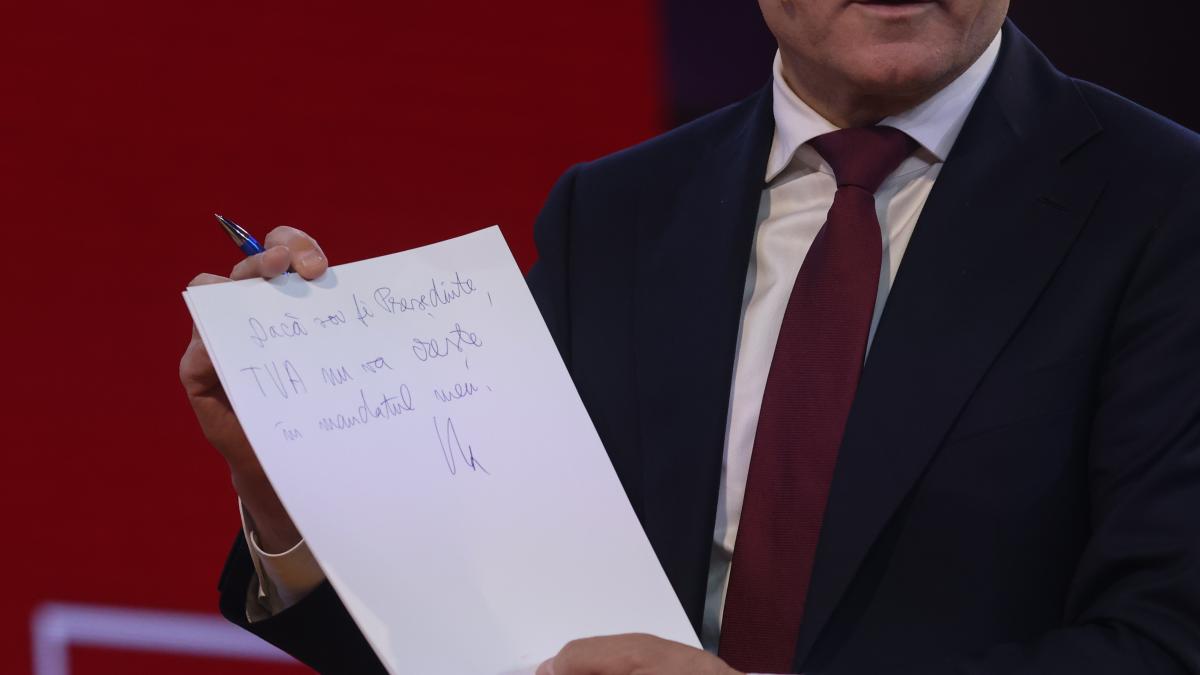 Dacă voi fi Președinte,
TVA nu va crește
în mandatul meu.